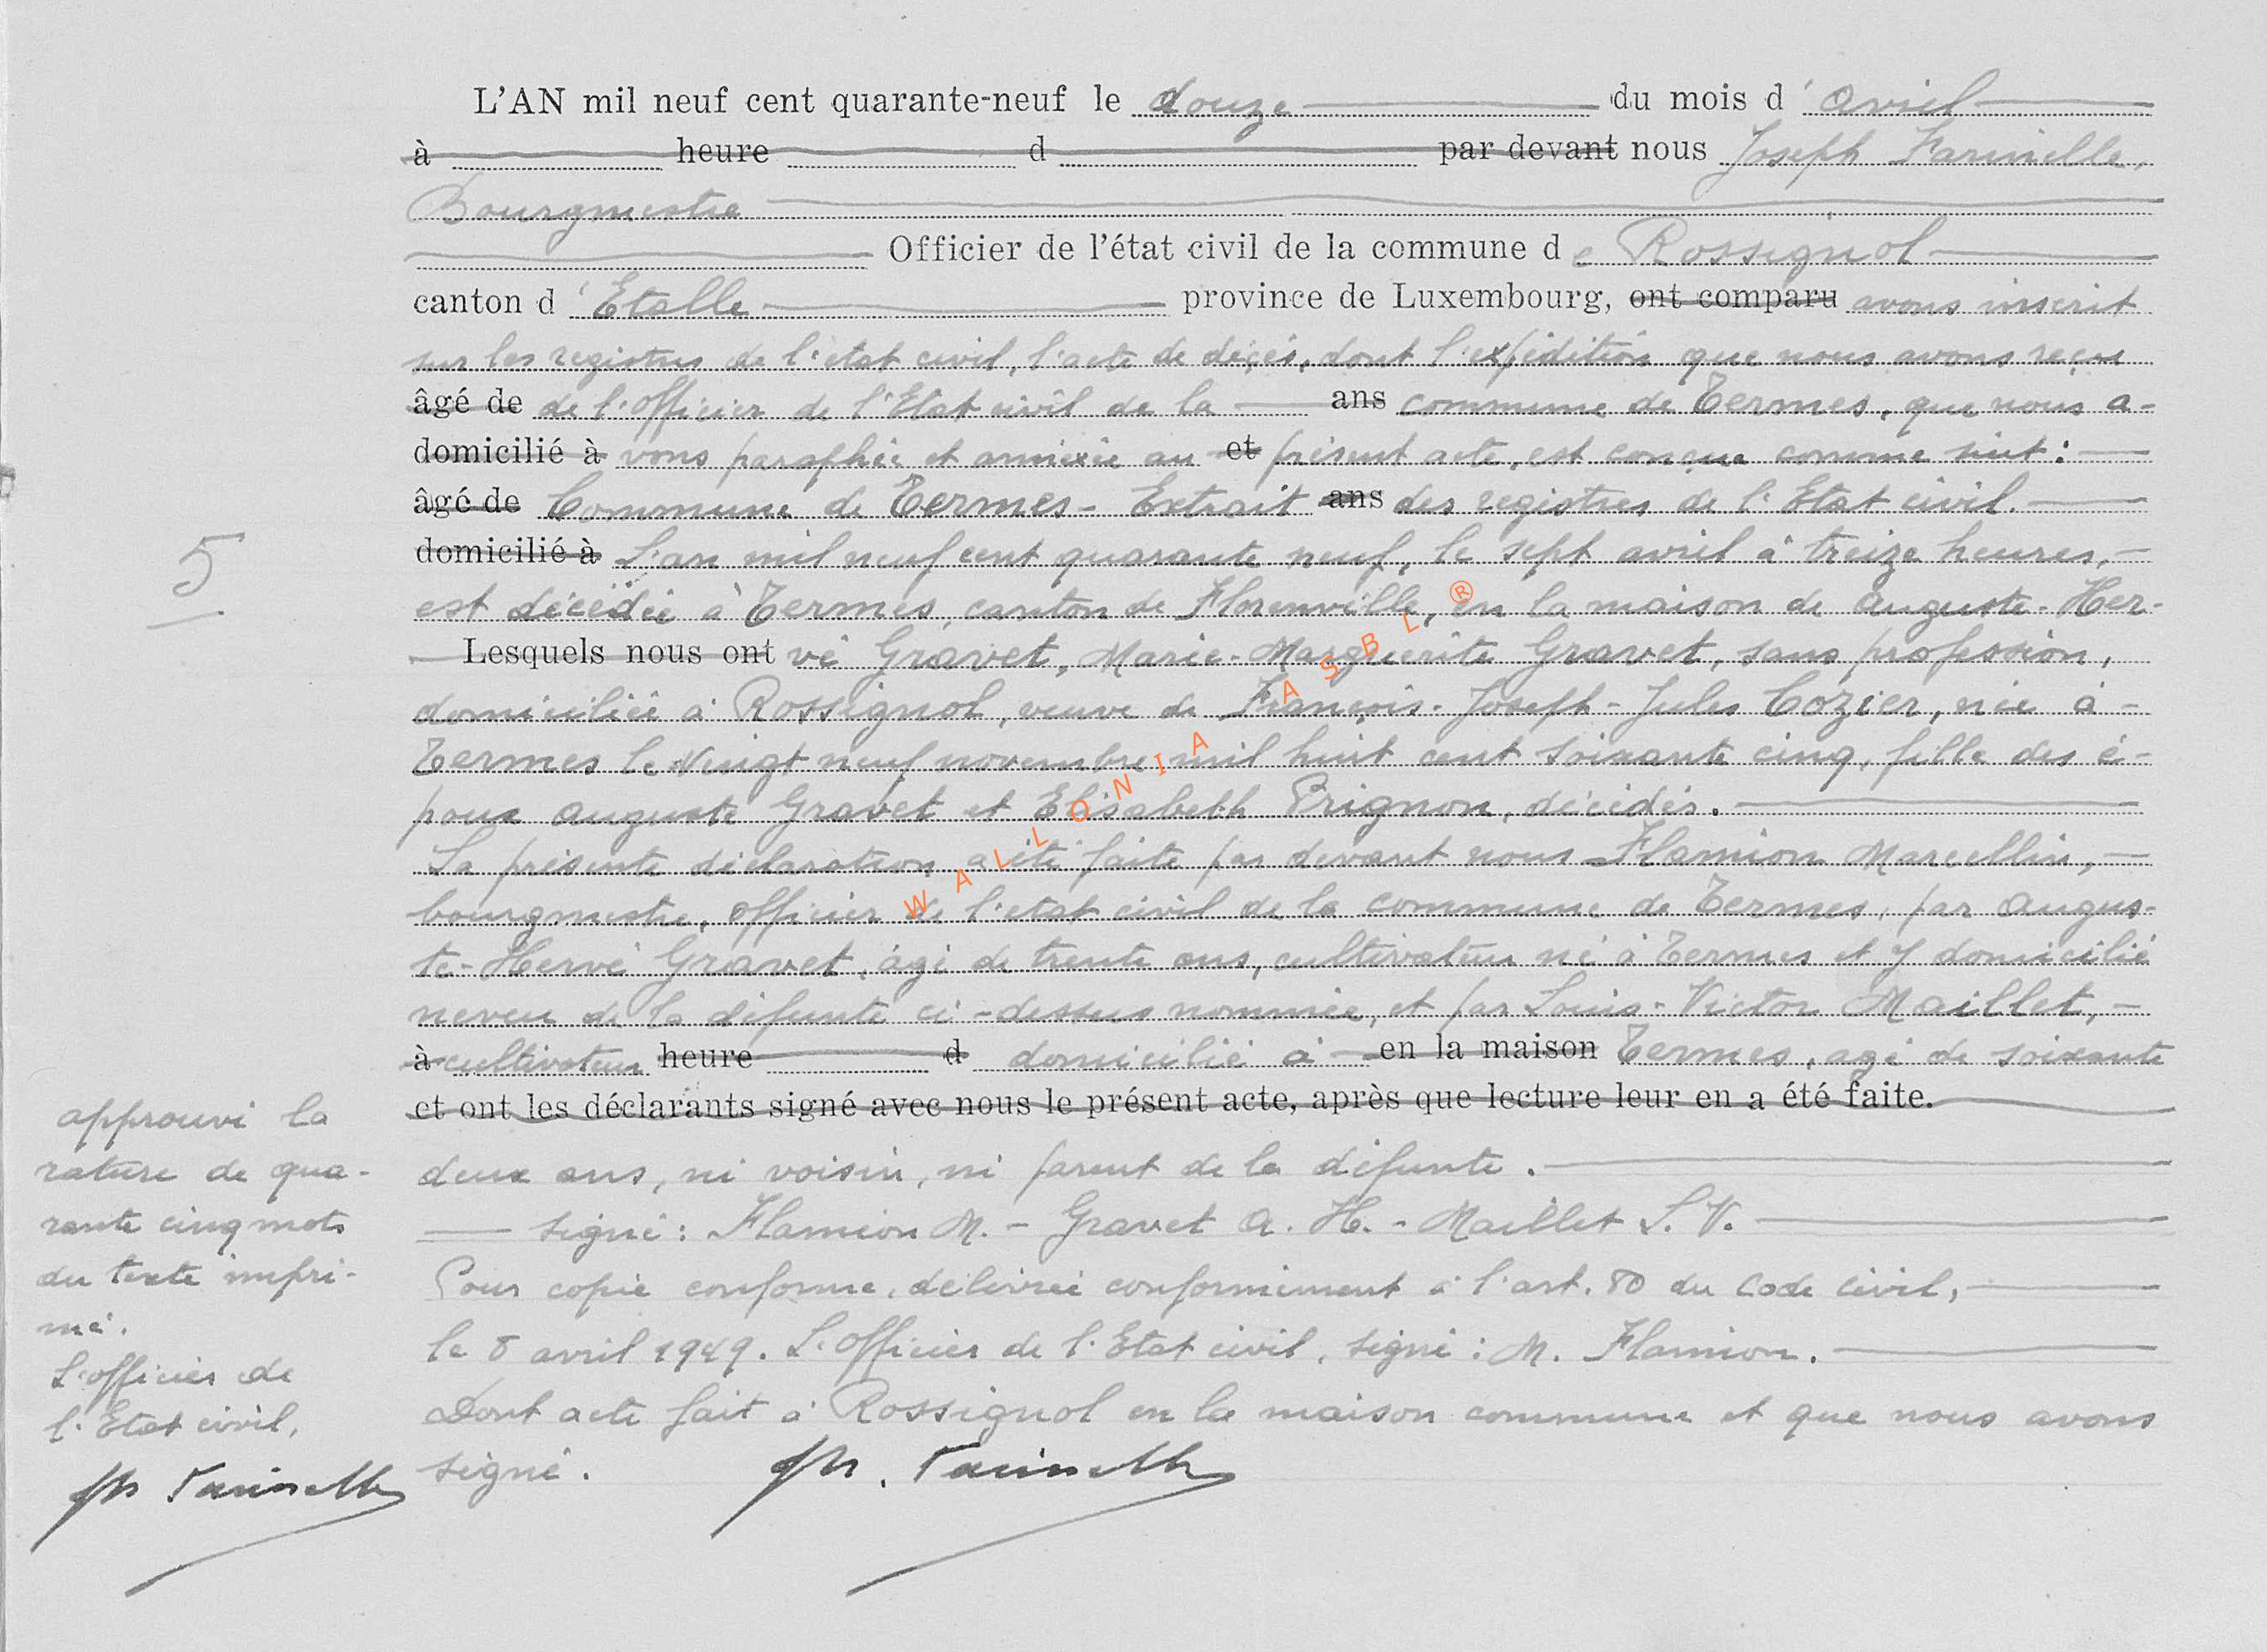 L'AN mil neuf cent quarante-neuf le douze du mois d'avril
à heure d par devant nous Joseph Farinelle,
Bourgmestre
Officier de l'état civil de la commune de Rossignol
canton d'Etalle province de Luxembourg, ont comparu avons inscrit
sur les registres de l'état civil, l'acte de décès, dont l'expédition que nous avons reçue
âgé de de l'officier de l'Etat civil de la ans commune de Termes, que nous a-
domicilié à vons paraphée et annexée au et présent acte, est conçue comme suit :
âgé de Commune de Termes - Extrait ans des registres de l'Etat civil.
domicilié à L'an mil neuf cent quarante neuf, le sept avril à treize heures,
est décédée à Termes, canton de Florenville, en la maison de Auguste-Her-
Lesquels nous ont vé Gravet, Marie-Marguerite Gravet, sans profession,
domiciliée à Rossignol, veuve de François-Joseph-Jules Cozier, née à
Termes le vingt neuf novembre mil huit cent soixante cinq, fille des é-
poux Auguste Gravet et Elisabeth Prignon, décédés.
La présente déclaration a été faite par devant nous Flamion Marcellin,
bourgmestre, officier de l'état civil de la commune de Termes, par Augus-
te-Hervé Gravet, âgé de trente ans, cultivateur né à Termes et y domicilié
neveu de la défunte ci-dessus nommée, et par Louis-Victor Maillet,
à cultivateur heure d domicilié à en la maison Termes, agé de soixante
et ont les déclarants signé avec nous le présent acte, après que lecture leur en a été faite.
deux ans, ni voisin, ni parent de la défunte.
signé : Flamion M. - Gravet A. H. - Maillet L. V.
Pour copie conforme, délivrée conformément à l'art. 80 du Code civil,
le 8 avril 1949. L'officier de l'Etat civil, signé : M. Flamion.
Dont acte fait à Rossignol en la maison commune et que nous avons
signé. Jh. Farinelle
5
approuvé la
rature de qua-
rante cinq mots
du texte impri-
mé.
L'officier de
l'Etat civil,
Jh Farinelle
WALLONIA ASBL ®